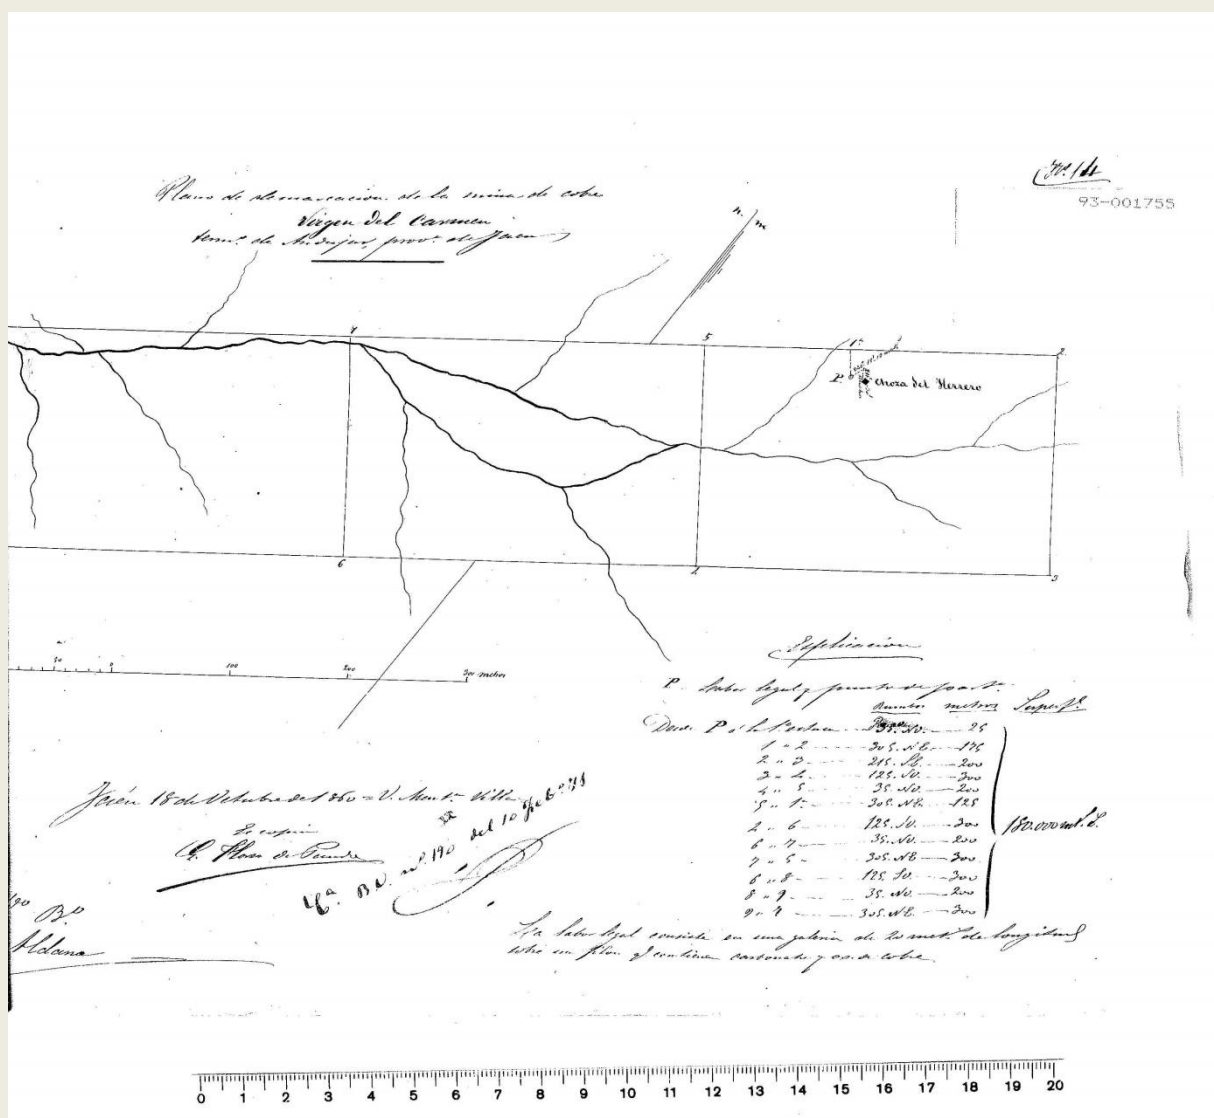 Nº. 14
93-001755
Plano de demarcacion de la mina de cobre
Virgen del Carmen
termº. de Andujar, provª. de Jaen
n. m
7 5 1ª 2
P. Choza del Herrero
6 4 3
50 0 100 200 300 metros
Esplicacion
P. Labor legal y punto de partª.
Rumbos metros Superfª.
Desde P á la 1ª estaca 35. NO. 25
1 " 2 305. NE. 175
2 " 3 215. SE. 200
3 " 4 125. SO. 300
4 " 5 35. NO. 200
5 " 1ª 305. NE. 125
4 " 6 125. SO. 300
6 " 7 35. NO. 200
7 " 5 305. NE 300
6 " 8 125. SO. 300
8 " 9 35. NO. 200
9 " 7 305. NE. 300
180.000 mt. S.
La labor legal consiste en una galeria de 20 met. de longitud
sobre un filon q contiene carbonato y de cobre.
Jaén 18 de Octubre de 1860 =
Es copia
Bº
Aldana
0 1 2 3 4 5 6 7 8 9 10 11 12 13 14 15 16 17 18 19 20